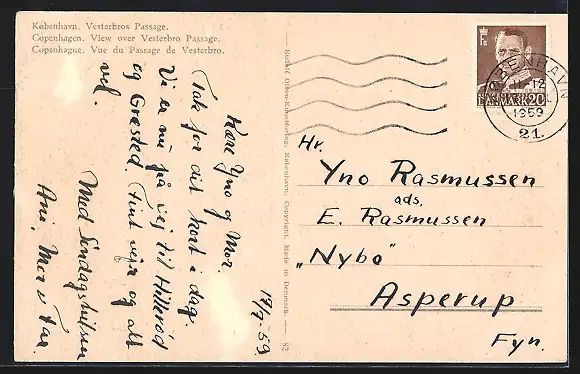 København. Vesterbros Passage.
Copenhagen. View over Vesterbro Passage.
Copenhague. Vue du Passage de Vesterbro.
17/7-59.
Kære Yno og Mor.
Tak for dit kort i dag.
Vi er nu på vej til Hillerød
og Græsted. Fint vejr og alt
vel.
Med Søndagshilsen
Ani, Mor & Far.
Rudolf Olsen-Kunstforlag, København. Copyright. Made in Denmark. — 82
DANMARK 20
KØBENHAVN
12
1959
21.
Hr.
Yno Rasmussen
ads.
E. Rasmussen
„Nybo"
Asperup
Fyn.